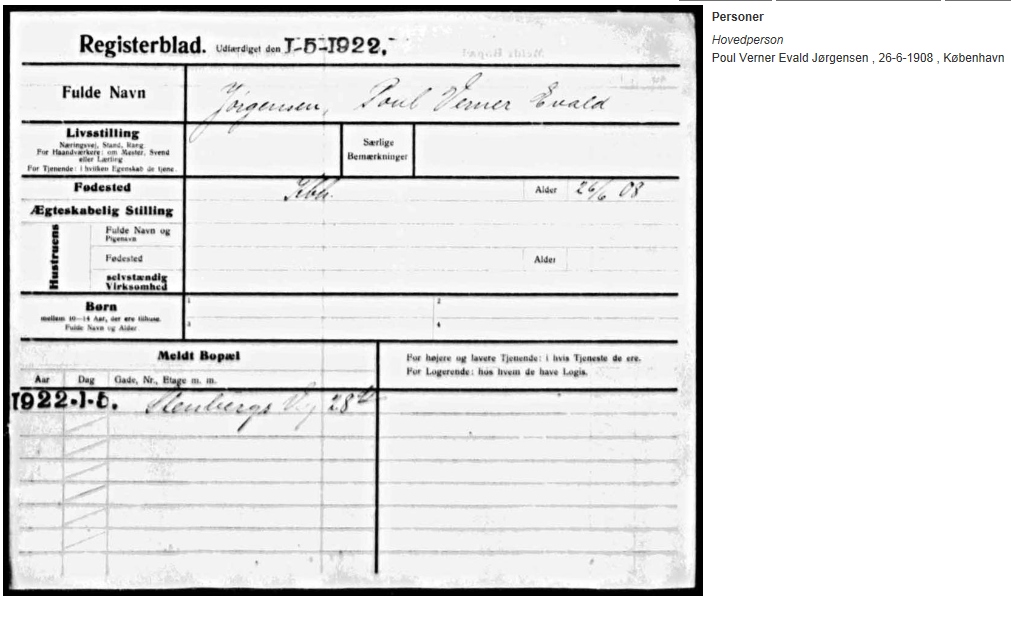 Registerblad. Udfærdiget den 1-5-1922.
Fulde Navn Jørgensen, Poul Verner Evald
Livsstilling
Næringsvej, Stand, Rang.
For Haandværkere: om Mester, Svend
eller Lærling
For Tjenende: i hvilken Egenskab de tjene.
Særlige
Bemærkninger
Fødested Kbh. Alder 26/6 08
Ægteskabelig Stilling
Hustruens
Fulde Navn og
Pigenavn
Fødested Alder
selvstændig
Virksomhed
Børn
mellem 10—14 Aar, der ere tilhuse.
Fulde Navn og Alder.
1 2
3 4
Meldt Bopæl
Aar Dag Gade, Nr., Etage m. m.
For højere og lavere Tjenende: i hvis Tjeneste de ere.
For Logerende: hos hvem de have Logis.
1922-1-5. Stenbergs Vej 28
Personer
Hovedperson
Poul Verner Evald Jørgensen , 26-6-1908 , København